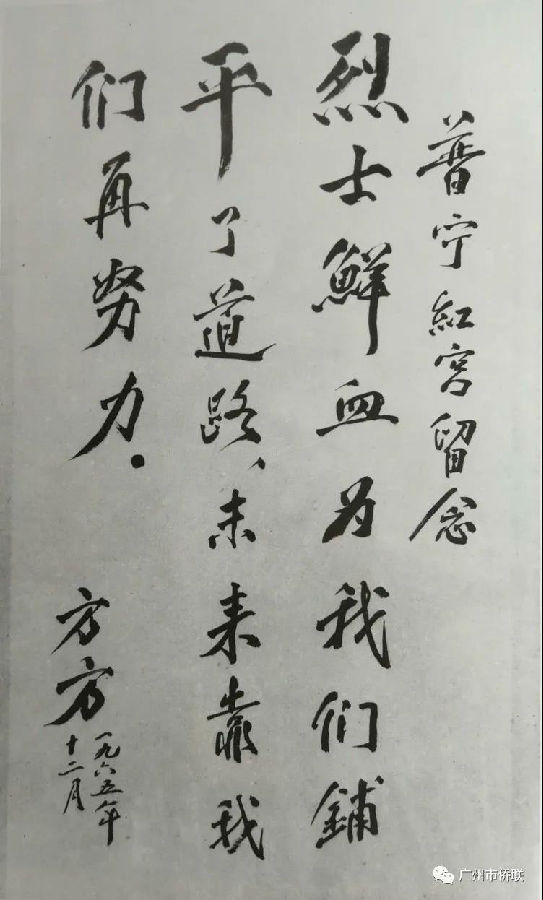 普宁紅宮留念
烈士鮮血为我们鋪
平了道路、未来靠我
们再努力.
方方
一九六五年
十二月
广州市侨联